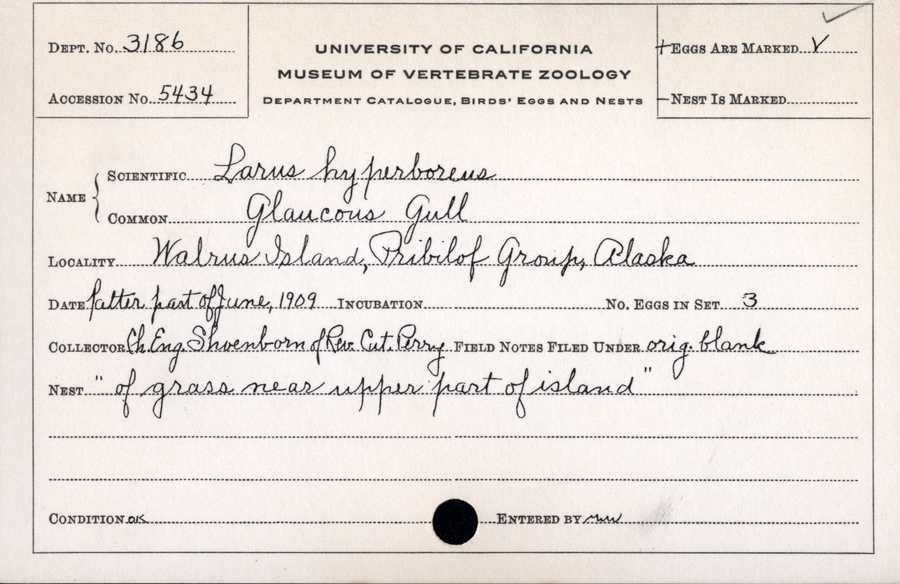 Dept. No. 3186
Accession No. 5434
UNIVERSITY OF CALIFORNIA
MUSEUM OF VERTEBRATE ZOOLOGY
Department Catalogue, Birds' Eggs and Nests
+ Eggs Are Marked V
— Nest Is Marked
Name { Scientific Larus hyperboreus
Common Glaucous Gull
Locality Walrus Island, Pribilof Group, Alaska
Date latter part of June, 1909 Incubation No. Eggs in Set 3
Collector Ch. Eng. Shoenborn of Rev. Cut. Perry Field Notes Filed Under orig. blank
Nest "of grass near upper part of island"
Condition OK Entered by